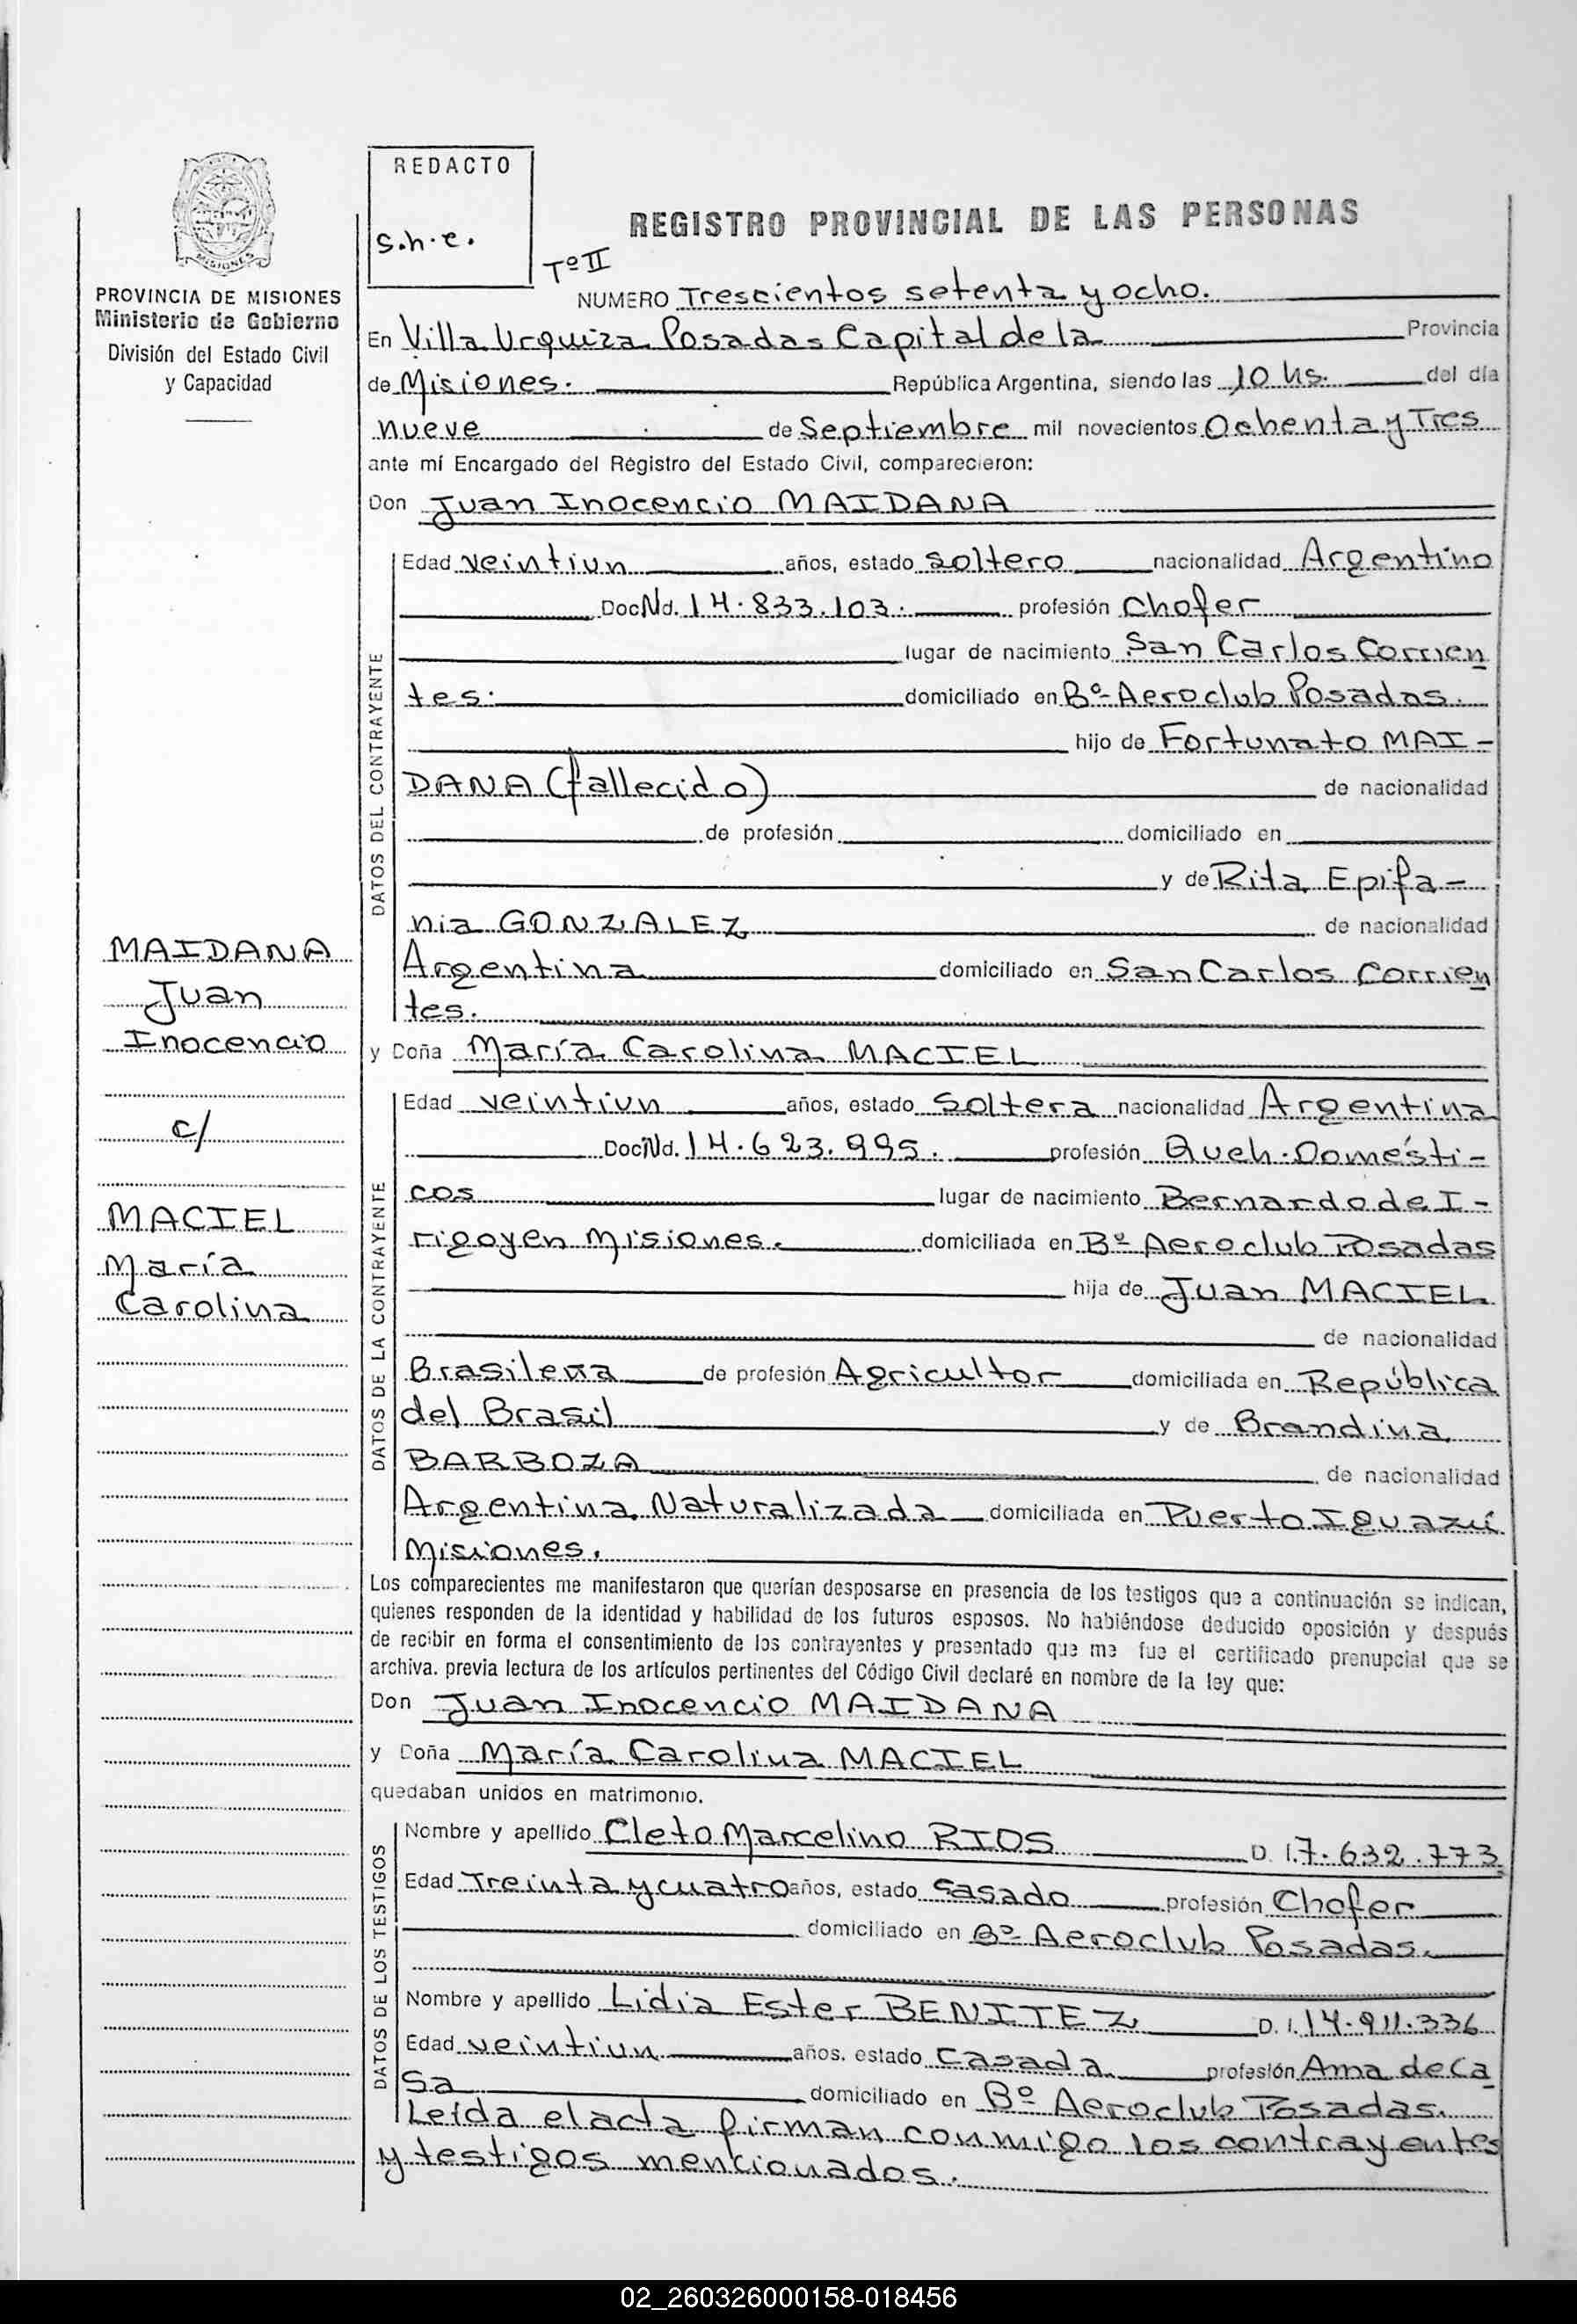 REDACTO
S.h.e.
MISIONES
PROVINCIA DE MISIONES
Ministerio de Gobierno
División del Estado Civil
y Capacidad
REGISTRO PROVINCIAL DE LAS PERSONAS
Tº II
NUMERO Trescientos setenta y ocho.
En Villa Urquiza Posadas Capital de la Provincia
de Misiones. República Argentina, siendo las 10 hs. del día
nueve de Septiembre mil novecientos Ochenta y Tres
ante mí Encargado del Régistro del Estado Civil, comparecieron:
Don Juan Inocencio MAIDANA
DATOS DEL CONTRAYENTE
Edad veintiun años, estado soltero nacionalidad Argentino
Doc Nd. 14.833.103. profesión Chofer
lugar de nacimiento San Carlos Corrien
tes. domiciliado en Bº Aeroclub Posadas.
hijo de Fortunato MAI-
DANA (fallecido) de nacionalidad
de profesión domiciliado en
y de Rita Epifa-
nia GONZALEZ de nacionalidad
Argentina domiciliado en San Carlos Corrien
tes.
MAIDANA
Juan
Inocencio
c/
MACIEL
María
Carolina
y Doña María Carolina MACIEL
DATOS DE LA CONTRAYENTE
Edad veintiun años, estado Soltera nacionalidad Argentina
Doc Nd. 14.623.995. profesión Queh. Domésti-
cos lugar de nacimiento Bernardo de I-
rigoyen Misiones. domiciliada en Bº Aeroclub Posadas
hija de Juan MACIEL
de nacionalidad
Brasileña de profesión Agricultor domiciliada en República
del Brasil y de Brandina
BARBOZA de nacionalidad
Argentina Naturalizada domiciliada en Puerto Iguazú
Misiones.
Los comparecientes me manifestaron que querían desposarse en presencia de los testigos que a continuación se indican,
quienes responden de la identidad y habilidad de los futuros esposos. No habiéndose deducido oposición y después
de recibir en forma el consentimiento de los contrayentes y presentado que me fue el certificado prenupcial que se
archiva. previa lectura de los artículos pertinentes del Código Civil declaré en nombre de la ley que:
Don Juan Inocencio MAIDANA
y Doña María Carolina MACIEL
quedaban unidos en matrimonio.
DATOS DE LOS TESTIGOS
Nombre y apellido Cleto Marcelino RIOS D. I. 7.632.773
Edad Treinta y cuatro años, estado casado profesión Chofer
domiciliado en Bº Aeroclub Posadas.
Nombre y apellido Lidia Ester BENITEZ D. I. 14.911.336
Edad veintiun años, estado Casada profesión Ama de Ca
sa domiciliado en Bº Aeroclub Posadas.
Leída el acta firman conmigo los contrayentes
y testigos mencionados.
02_260326000158-018456